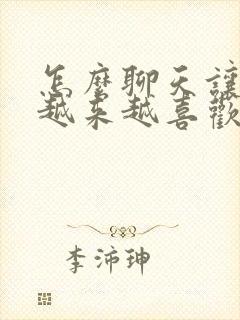 怎麼聊天讓
越來越喜歡
李沛珅